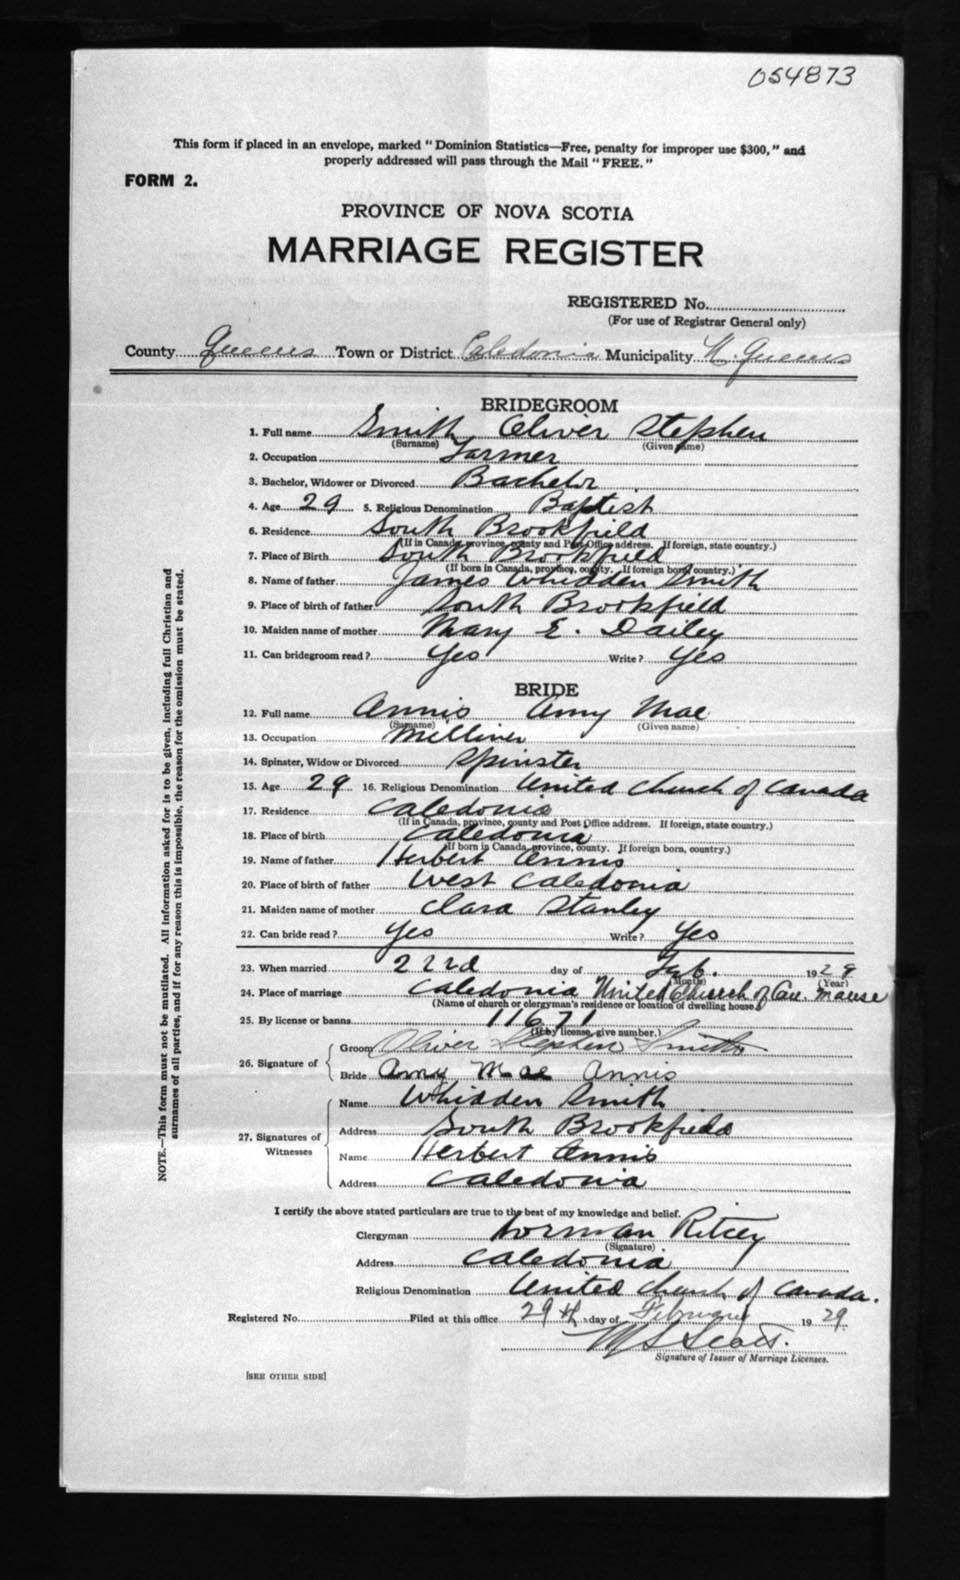 054873
This form if placed in an envelope, marked "Dominion Statistics—Free, penalty for improper use $300," and
properly addressed will pass through the Mail "FREE."
FORM 2.
PROVINCE OF NOVA SCOTIA
MARRIAGE REGISTER
REGISTERED No.
(For use of Registrar General only)
County Queens Town or District Caledonia Municipality N. Queens
BRIDEGROOM
1. Full name Smith Oliver Stephen
(Surname) (Given name)
2. Occupation Farmer
3. Bachelor, Widower or Divorced Bachelor
4. Age 29 5. Religious Denomination Baptist
6. Residence South Brookfield
(If in Canada, province, county and Post Office address. If foreign, state country.)
7. Place of Birth South Brookfield
(If born in Canada, province, county. If foreign born, country.)
8. Name of father James Whidden Smith
9. Place of birth of father South Brookfield
10. Maiden name of mother Mary E. Dailey
11. Can bridegroom read? Yes Write? Yes
BRIDE
12. Full name Annis Amy Mae
(Surname) (Given name)
13. Occupation Milliner
14. Spinster, Widow or Divorced Spinster
15. Age 29 16. Religious Denomination United Church of Canada
17. Residence Caledonia
(If in Canada, province, county and Post Office address. If foreign, state country.)
18. Place of birth Caledonia
(If born in Canada, province, county. If foreign born, country.)
19. Name of father Herbert Annis
20. Place of birth of father West Caledonia
21. Maiden name of mother Clara Stanley
22. Can bride read? Yes Write? Yes
23. When married 22nd day of Feb. 1929
(Month) (Year)
24. Place of marriage Caledonia United Church of Can. Manse
(Name of church or clergyman's residence or location of dwelling house.)
25. By license or banns 11671
(If by license, give number.)
26. Signature of Groom Oliver Stephen Smith
Bride Amy Mae Annis
27. Signatures of Witnesses
Name Whidden Smith
Address South Brookfield
Name Herbert Annis
Address Caledonia
I certify the above stated particulars are true to the best of my knowledge and belief.
Clergyman Norman Ritcey
(Signature)
Address Caledonia
Religious Denomination United Church of Canada.
Registered No. Filed at this office 29th day of February 1929.
Signature of Issuer of Marriage Licenses.
[SEE OTHER SIDE]
NOTE.—This form must not be mutilated. All information asked for is to be given, including full Christian and
surnames of all parties, and if for any reason this is impossible, the reason for the omission must be stated.